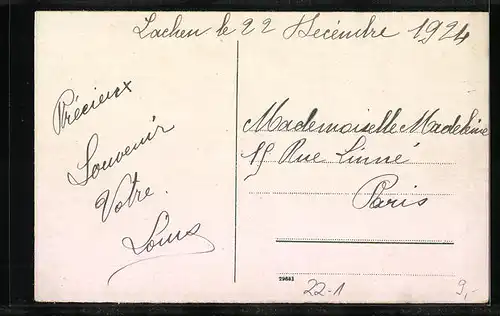 Lachen le 22 Décembre 1924
Précieux
Souvenir
Votre
Louis
Mademoiselle Madeleine
15 Rue Linné
Paris
29441
22-1
9,-